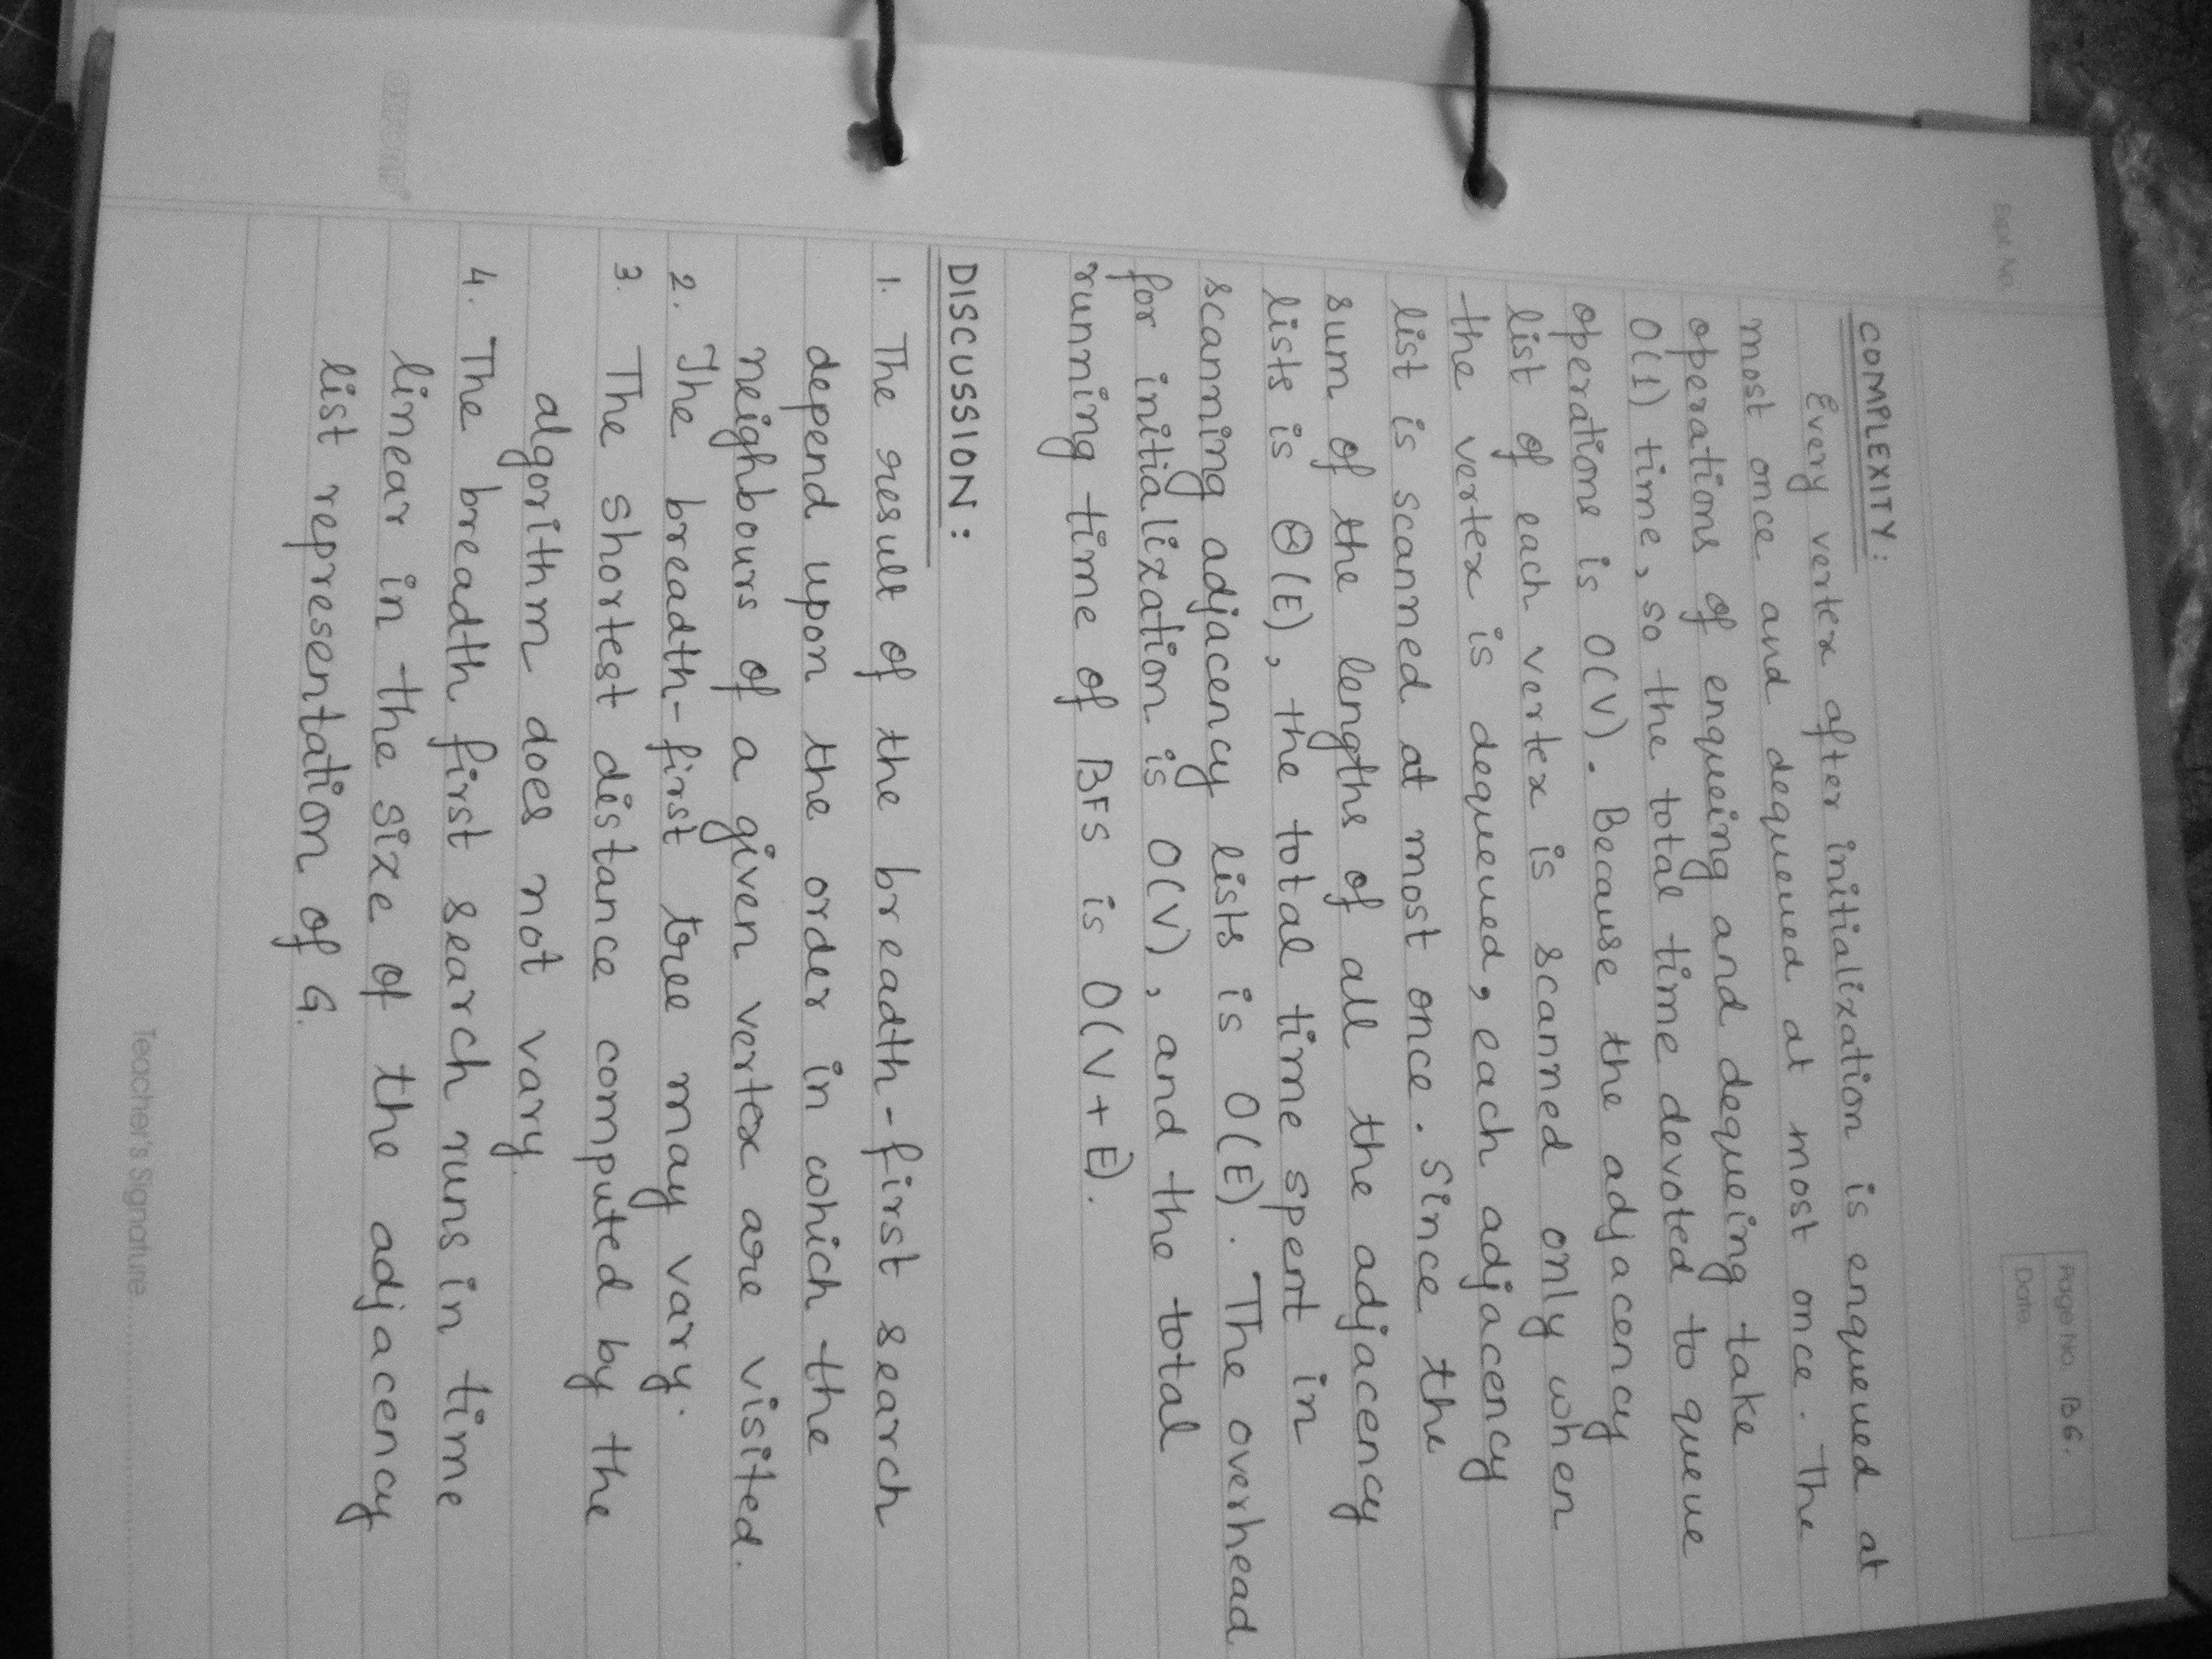 Expt. No.
Page No. B6.
Date
COMPLEXITY:
Every vertex after initialization is enqueued at
most once and dequeued at most once. The
operations of enqueing and dequeing take
O(1) time, so the total time devoted to queue
operations is O(V). Because the adjacency
list of each vertex is scanned only when
the vertex is dequeued, each adjacency
list is scanned at most once. Since the
sum of the lengths of all the adjacency
lists is Θ(E), the total time spent in
scanning adjacency lists is O(E). The overhead
for initialization is O(V), and the total
running time of BFS is O(V+E).
DISCUSSION:
1. The result of the breadth-first search
depend upon the order in which the
neighbours of a given vertex are visited.
2. The breadth-first tree may vary.
3. The shortest distance computed by the
algorithm does not vary.
4. The breadth first search runs in time
linear in the size of the adjacency
list representation of G.
Teacher's Signature